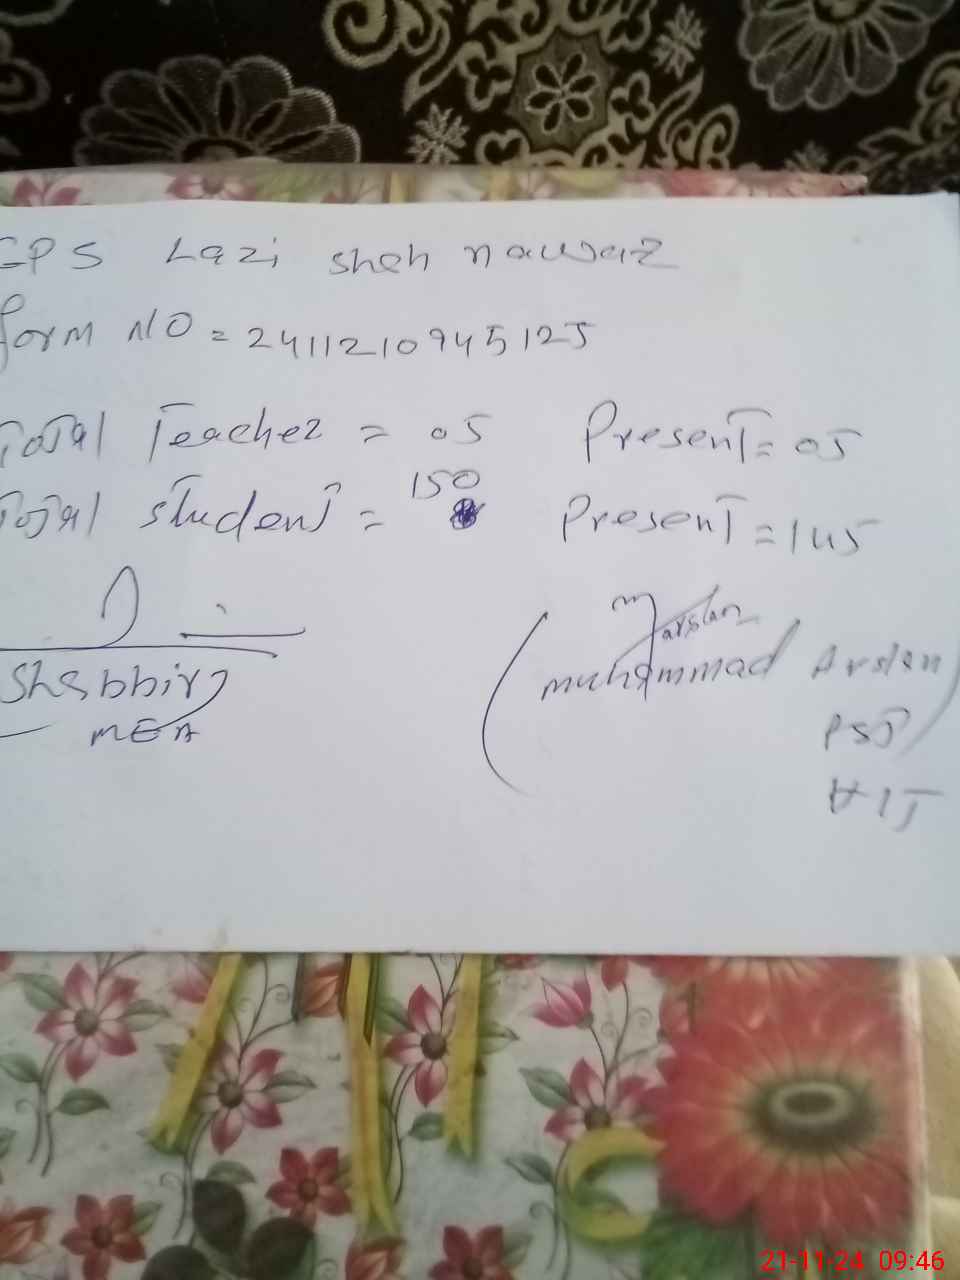 GPS Lazi shah nawaz
form NO = 2411210945125
Total Teacher = 05 Present = 05
Total student = 150 Present = 145
Shabbir
MEA
M arslan
(muhammad Arslan)
PST
21-11-24 09:46